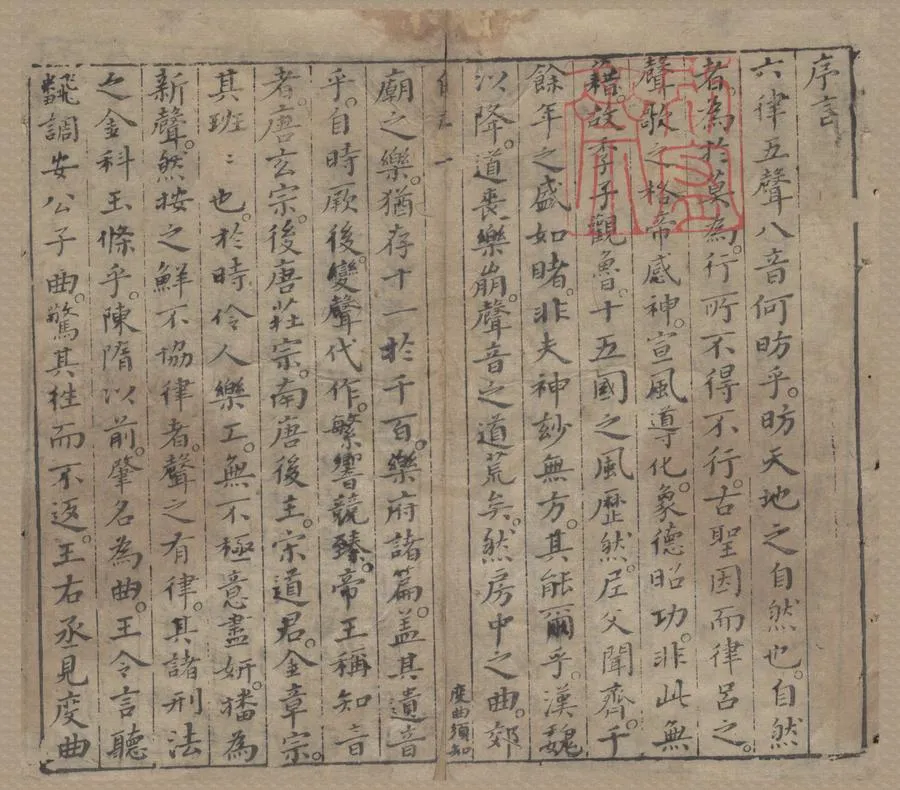 序言
六律五聲八音何昉乎。昉天地之自然也。自然
者。為於莫為。行所不得不行。古聖因而律呂之。
聲歌之。格帝感神。宣風導化。象德昭功。非此無
藉。故季子觀魯。十五國之風歷然。尼父聞齊。千
餘年之盛如睹。非夫神玅無方。其能爾乎。漢魏
以降。道喪樂崩。聲音之道荒矣。然房中之曲。郊
一
度曲須知
廟之樂。猶存十一於千百。樂府諸篇。盖其遺音
乎。自時厥後。變聲代作。繁響競臻。帝王稱知音
者。唐玄宗。後唐莊宗。南唐後主。宋道君。金章宗。
其班〻也。於時伶人樂工。無不極意盡妍。播為
新聲。然按之鮮不協律者。聲之有律。其諸刑法
之金科玉條乎。陳隋以前。肇名為曲。王令言聽
飜調安公子曲。驚其徃而不返。王右丞見度曲